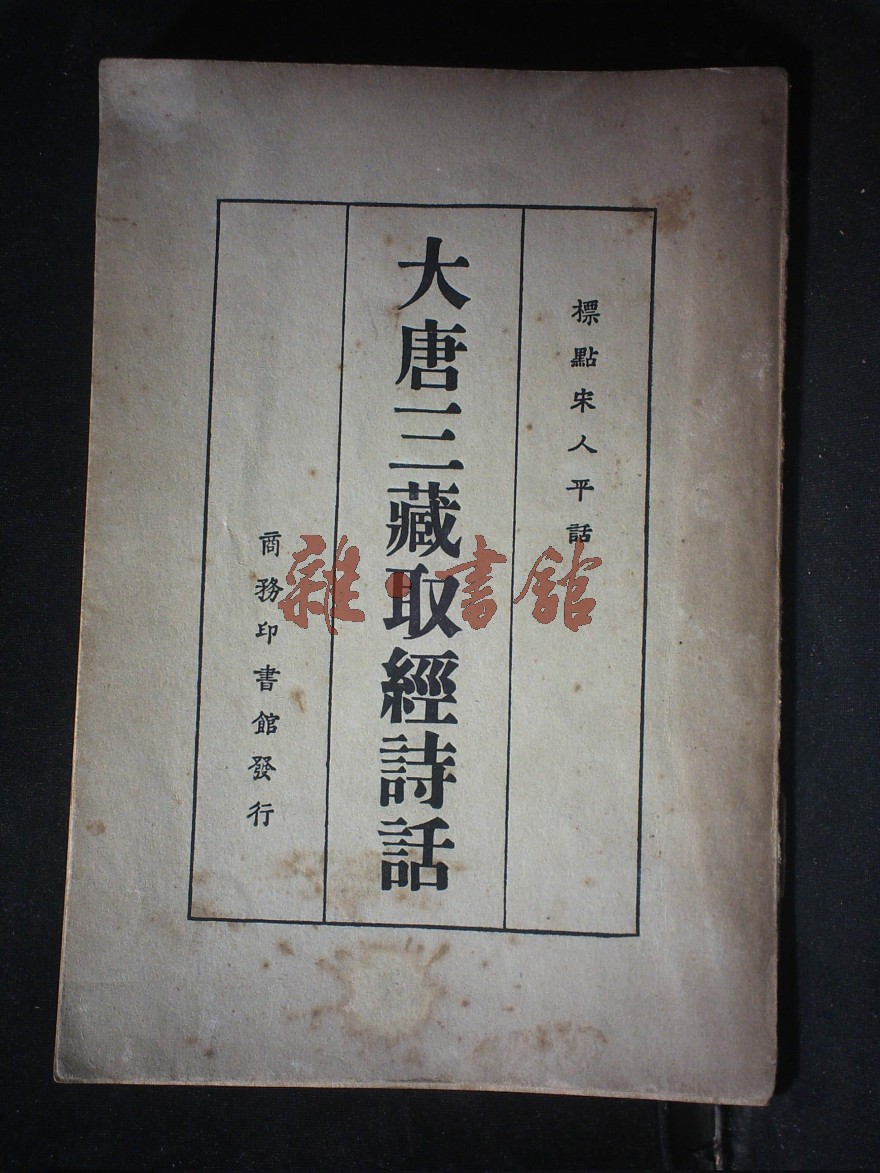 標點宋人平話
大唐三藏取經詩話
商務印書館發行
雜·書館